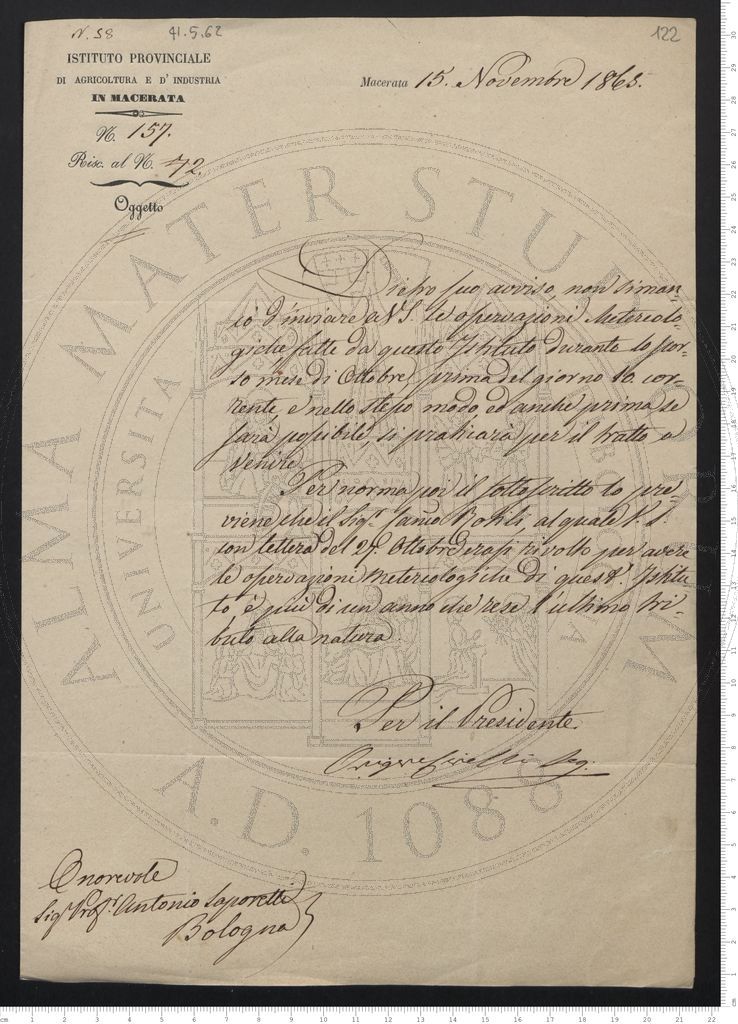 N. 58
41.5.62
122
ISTITUTO PROVINCIALE
DI AGRICOLTURA E D' INDUSTRIA
IN MACERATA
Macerata 15. Novembre 1863.
N. 157.
Risc. al N. 72.
Oggetto
Dietro suo avviso, non riman-
rò d'inviare a V.S. le osservazioni Metereolo-
giche fatte da questo Istituto durante lo scor-
so mese di Ottobre prima del giorno 10. cor-
rente, e nello stesso modo ed anche prima se
sarà possibile, si praticarà per il tratto a
venire.
Per norma poi il sottoscritto lo pre-
viene che il Sig.r Bonfili, al quale V.S.
con lettera del 29. Ottobre erasi rivolto per avere
le osservazioni Metereologiche di quest'. Istitu-
to è più di un anno che rese l'ultimo tri-
buto alla natura.
Per il Presidente.
Seg.
Onorevole
Sig.r Prof.r Antonio Saporetti
Bologna
ALMA MATER STUDIORUM
UNIVERSITÀ DI BOLOGNA
A.D. 1088